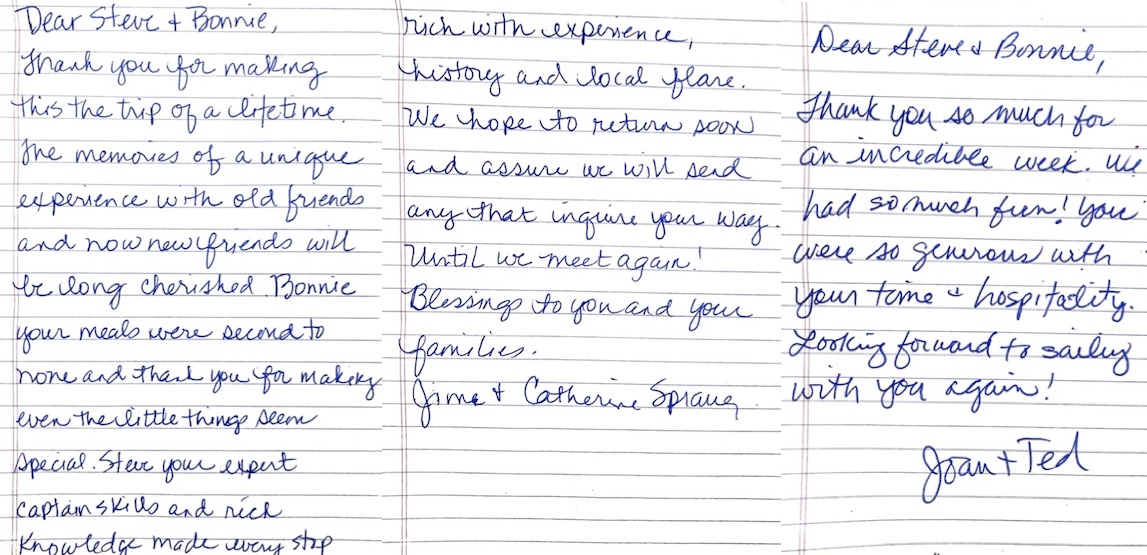 Dear Steve + Bonnie,
Thank you for making
this the trip of a lifetime.
The memories of a unique
experience with old friends
and now new friends will
be long cherished. Bonnie
your meals were second to
none and thank you for making
even the little things seem
special. Steve your expert
captain skills and rich
knowledge made every stop
rich with experience,
history and local flare.
We hope to return soon
and assure we will send
any that inquire your way.
Until we meet again!
Blessings to you and your
families.
+ Catherine
Dear Steve + Bonnie,
Thank you so much for
an incredible week. We
had so much fun! You
were so generous with
your time + hospitality.
Looking forward to sailing
with you again!
Joan + Ted